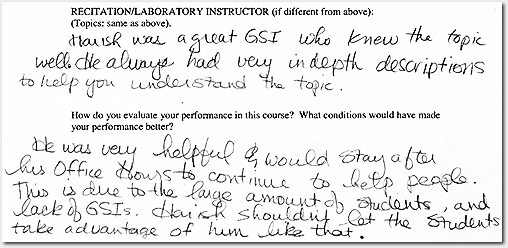 RECITATION/LABORATORY INSTRUCTOR (if different from above):
(Topics: same as above).
Harish was a great GSI who knew the topic
well. He always had very in depth descriptions
to help you understand the topic.
How do you evaluate your performance in this course? What conditions would have made
your performance better?
He was very helpful & would stay after
his Office Hours to continue to help people.
This is due to the large amount of students, and
lack of GSIs. Harish shouldn't let the students
take advantage of him like that.